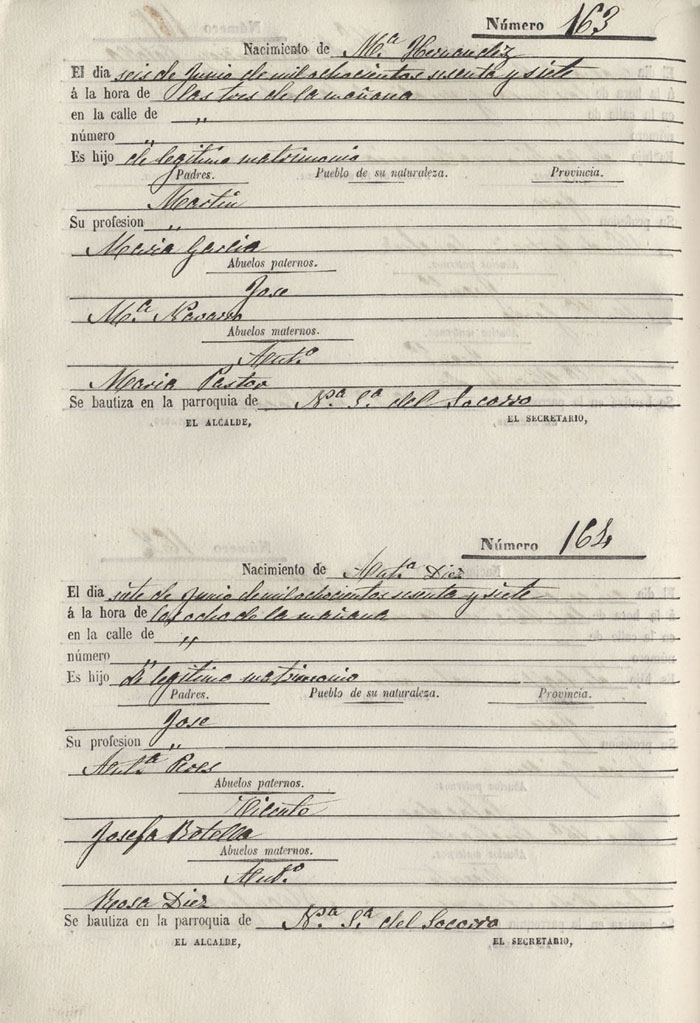 Número 163
Nacimiento de M.ª Hernandez
El dia seis de Junio de mil ochocientos sesenta y siete
á la hora de las tres de la mañana
en la calle de "
número "
Es hijo de legitimo matrimonio
Padres. Pueblo de su naturaleza. Provincia.
Martin
Su profesion "
Maria Garcia
Abuelos paternos.
Jose
M.ª Navarro
Abuelos maternos.
Ant.º
Maria Pastor
Se bautiza en la parroquia de N.ª S.ª del Socorro
EL ALCALDE, EL SECRETARIO,
Número 164
Nacimiento de Ant.ª Diez
El dia siete de Junio de mil ochocientos sesenta y siete
á la hora de las ocho de la mañana
en la calle de "
número "
Es hijo de legitimo matrimonio
Padres. Pueblo de su naturaleza. Provincia.
Jose
Su profesion "
Ant.ª
Abuelos paternos.
Vicente
Josefa Botella
Abuelos maternos.
Ant.º
Rosa Diez
Se bautiza en la parroquia de N.ª S.ª del Socorro
EL ALCALDE, EL SECRETARIO,